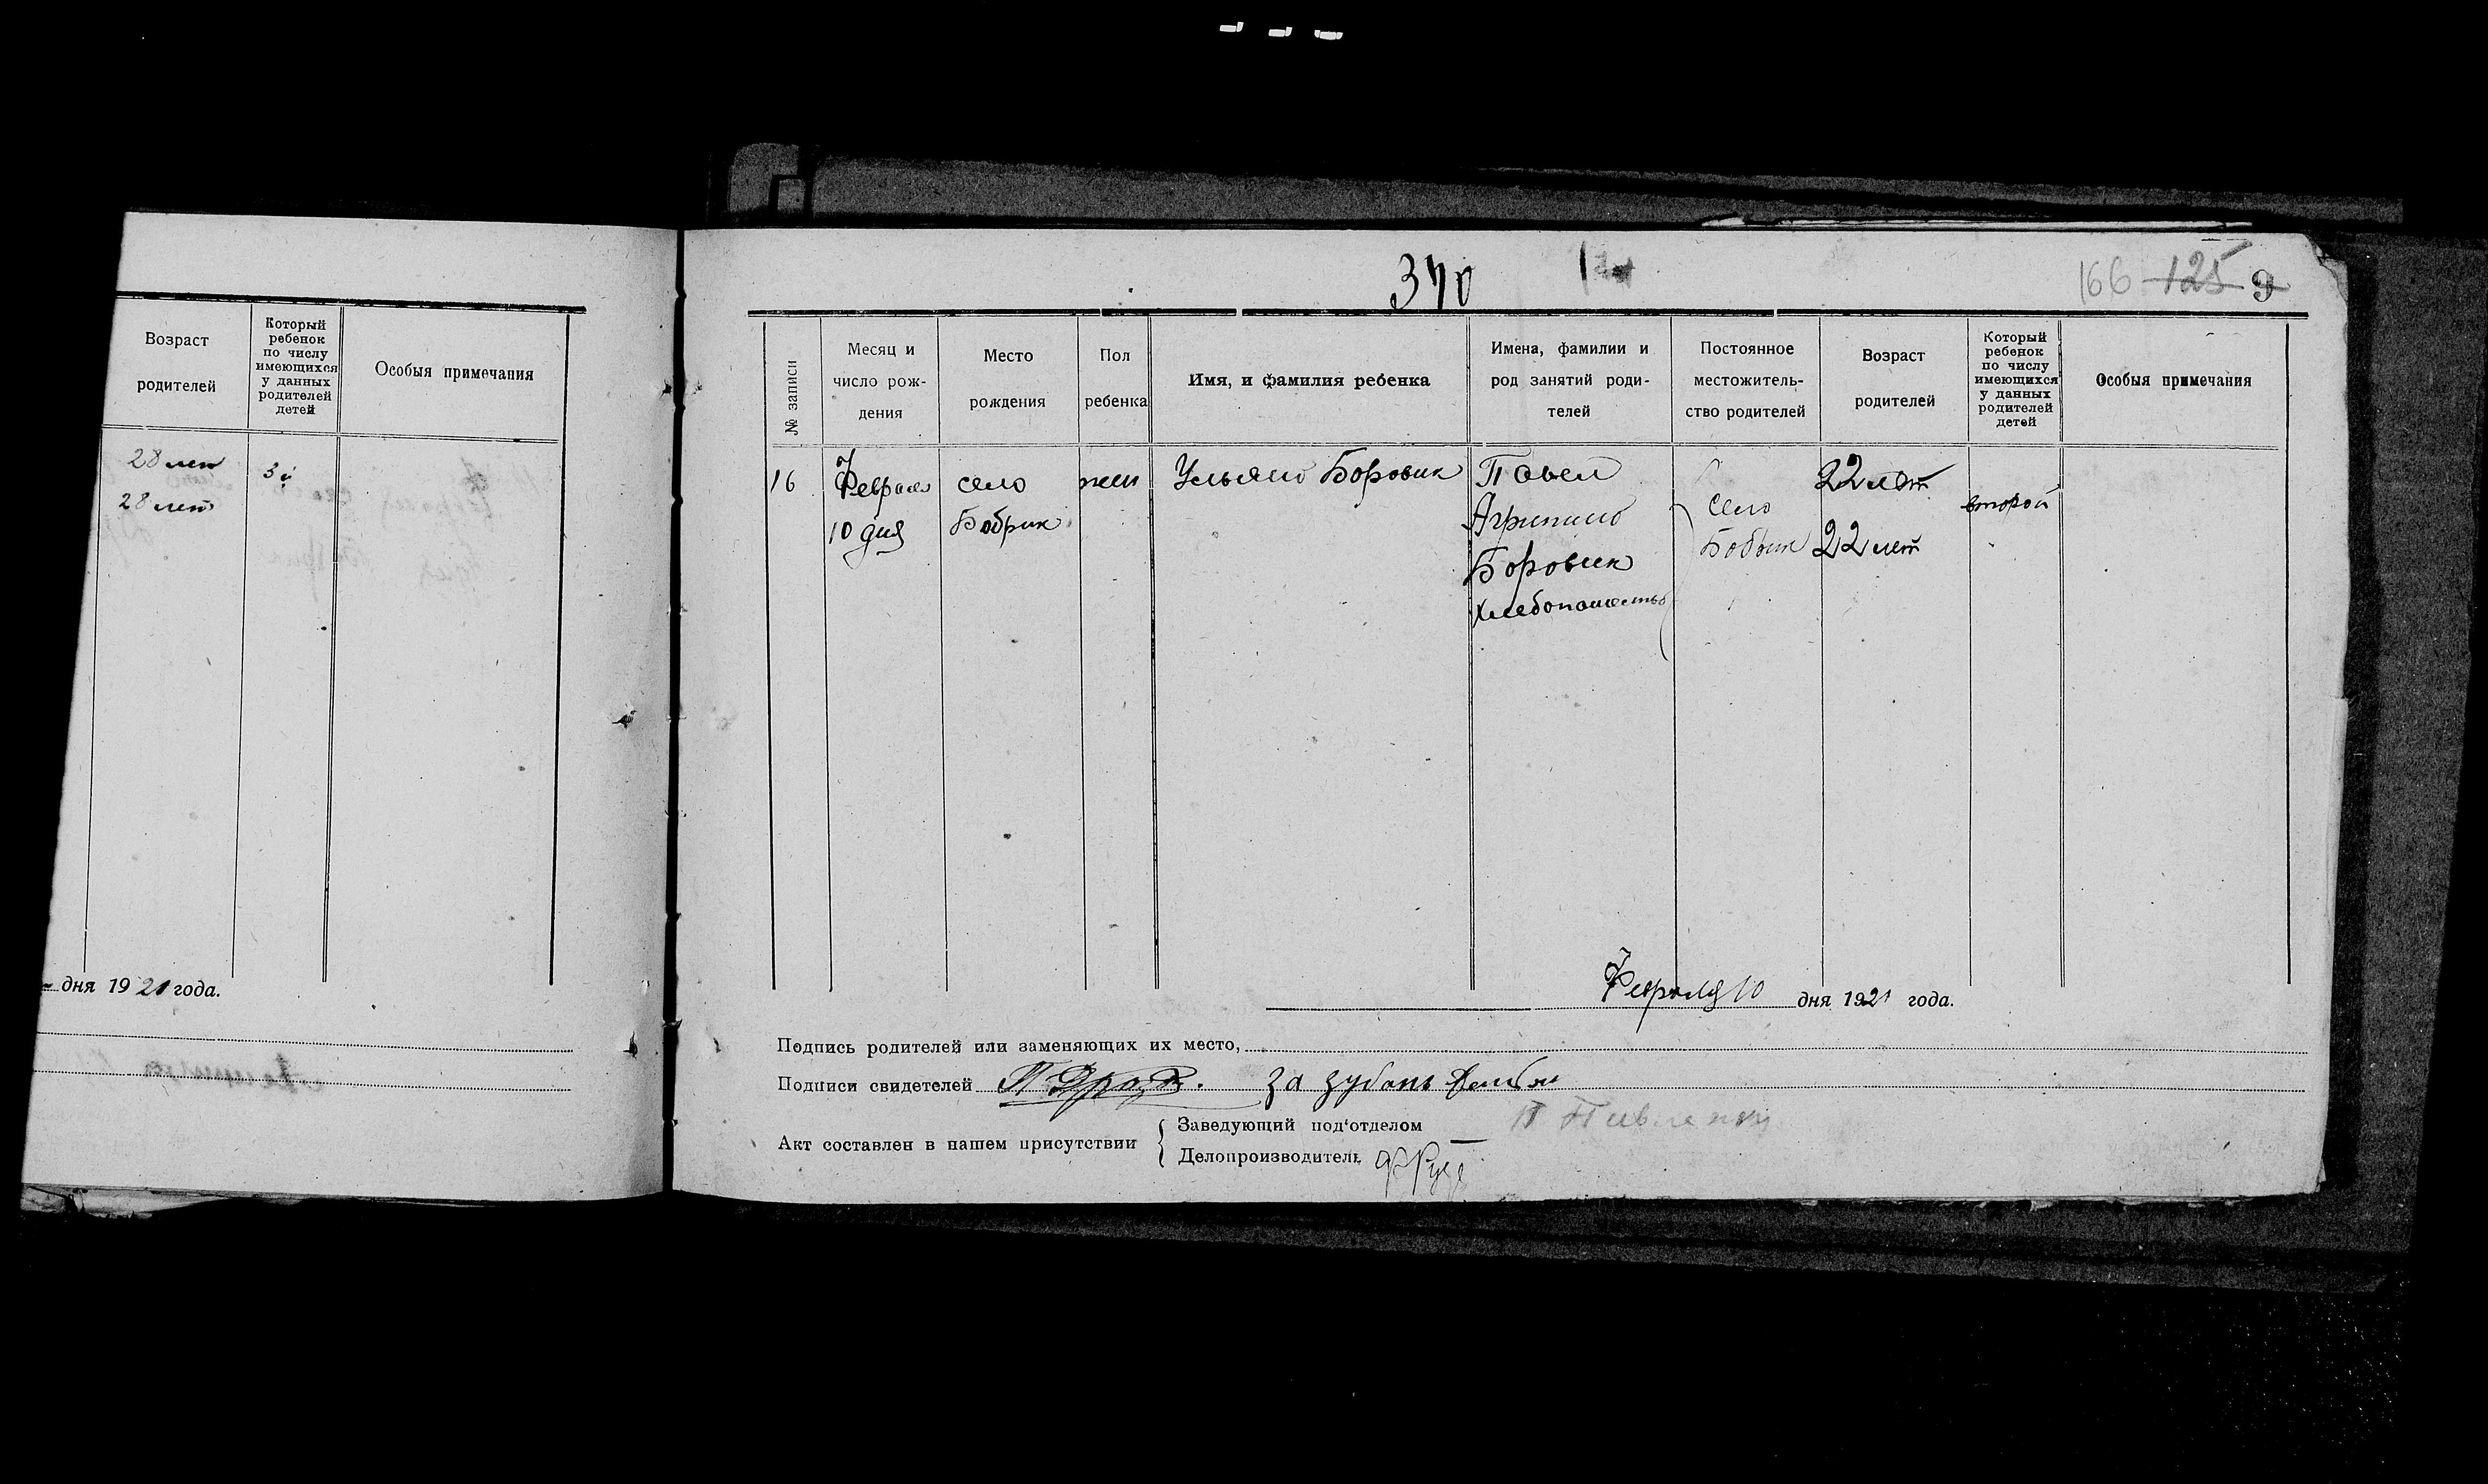 Возраст
родителей
Который
ребенок
по числу
имеющихся
у данных
родителей
детей
Особыя примечания
28 лет
3й
28 лет
дня 1921 года.
340
166 125 9
№ записи
Месяц и
число рож-
дения
Место
рождения
Пол
ребенка
Имя, и фамилия ребенка
Имена, фамилии и
род занятий роди-
телей
Постоянное
местожитель-
ство родителей
Возраст
родителей
Который
ребенок
по числу
имеющихся
у данных
родителей
детей
Особыя примечания
16
Февраля
10 дня
село
Бобрик
жен
Ульяна Боровик
Павел
Агрипина
Боровик
Хлебопашество
село
Бобрик
22 лет
22 лет
второй
Февраля 10 дня 1921 года.
Подпись родителей или заменяющих их место,
Подписи свидетелей За Зубань
Акт составлен в нашем присутствии
Заведующий под'отделом
Делопроизводитель